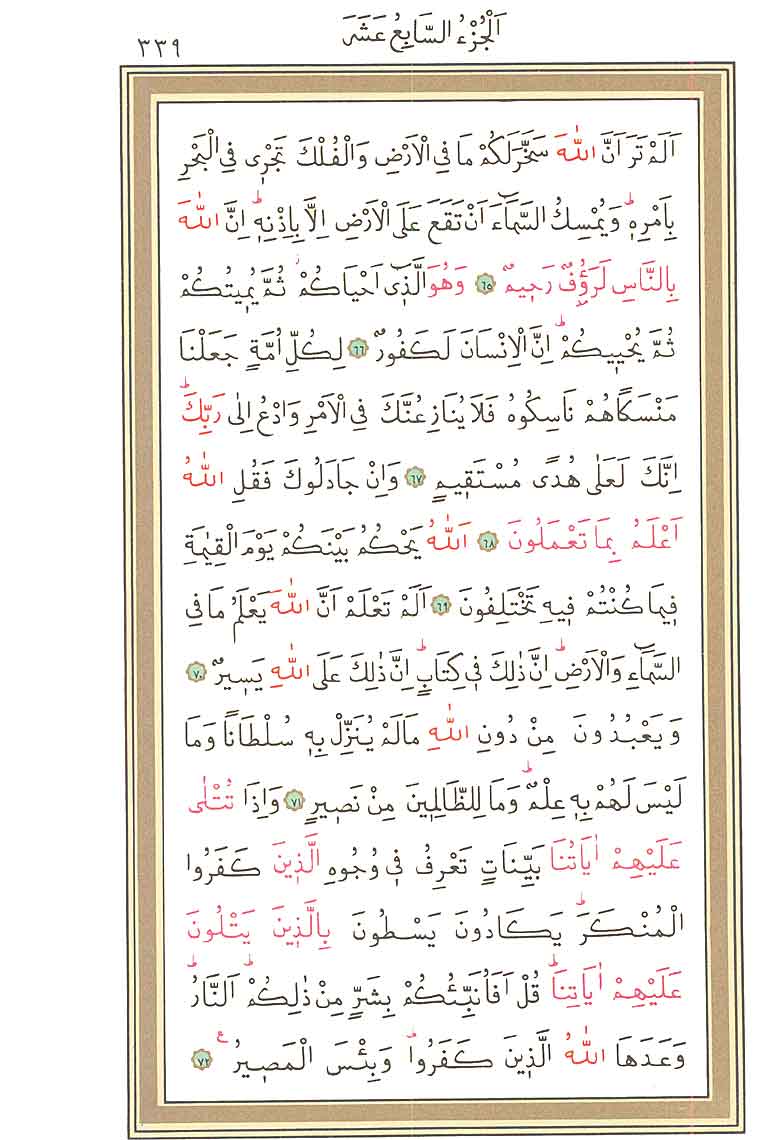 اَلْجُزْءُ السَّابِعُ عَشَرَ
٣٣٩
اَلَمْ تَرَ اَنَّ اللّٰهَ سَخَّرَ لَكُمْ مَا فِي الْاَرْضِ وَالْفُلْكَ تَجْر۪ي فِي الْبَحْرِ
بِاَمْرِه۪ۜ وَيُمْسِكُ السَّمَٓاءَ اَنْ تَقَعَ عَلَى الْاَرْضِ اِلَّا بِاِذْنِه۪ۜ اِنَّ اللّٰهَ
بِالنَّاسِ لَرَؤُ۫فٌ رَح۪يمٌ ﴿٦٥﴾ وَهُوَ الَّذ۪ٓي اَحْيَاكُمْۘ ثُمَّ يُم۪يتُكُمْ
ثُمَّ يُحْي۪يكُمْۜ اِنَّ الْاِنْسَانَ لَكَفُورٌ ﴿٦٦﴾ لِكُلِّ اُمَّةٍ جَعَلْنَا
مَنْسَكًا هُمْ نَاسِكُوهُ فَلَا يُنَازِعُنَّكَ فِي الْاَمْرِ وَادْعُ اِلٰى رَبِّكَۜ
اِنَّكَ لَعَلٰى هُدًى مُسْتَق۪يمٍ ﴿٦٧﴾ وَاِنْ جَادَلُوكَ فَقُلِ اللّٰهُ
اَعْلَمُ بِمَا تَعْمَلُونَ ﴿٦٨﴾ اَللّٰهُ يَحْكُمُ بَيْنَكُمْ يَوْمَ الْقِيٰمَةِ
ف۪يمَا كُنْتُمْ ف۪يهِ تَخْتَلِفُونَ ﴿٦٩﴾ اَلَمْ تَعْلَمْ اَنَّ اللّٰهَ يَعْلَمُ مَا فِي
السَّمَٓاءِ وَالْاَرْضِۜ اِنَّ ذٰلِكَ ف۪ي كِتَابٍۜ اِنَّ ذٰلِكَ عَلَى اللّٰهِ يَس۪يرٌ ﴿٧٠﴾
وَيَعْبُدُونَ مِنْ دُونِ اللّٰهِ مَا لَمْ يُنَزِّلْ بِه۪ سُلْطَانًا وَمَا
لَيْسَ لَهُمْ بِه۪ عِلْمٌۜ وَمَا لِلظَّالِم۪ينَ مِنْ نَص۪يرٍ ﴿٧١﴾ وَاِذَا تُتْلٰى
عَلَيْهِمْ اٰيَاتُنَا بَيِّنَاتٍ تَعْرِفُ ف۪ي وُجُوهِ الَّذ۪ينَ كَفَرُوا
الْمُنْكَرَۜ يَكَادُونَ يَسْطُونَ بِالَّذ۪ينَ يَتْلُونَ
عَلَيْهِمْ اٰيَاتِنَاۜ قُلْ اَفَاُنَبِّئُكُمْ بِشَرٍّ مِنْ ذٰلِكُمْۜ اَلنَّارُۜ
وَعَدَهَا اللّٰهُ الَّذ۪ينَ كَفَرُواۜ وَبِئْسَ الْمَص۪يرُ۟ ﴿٧٢﴾